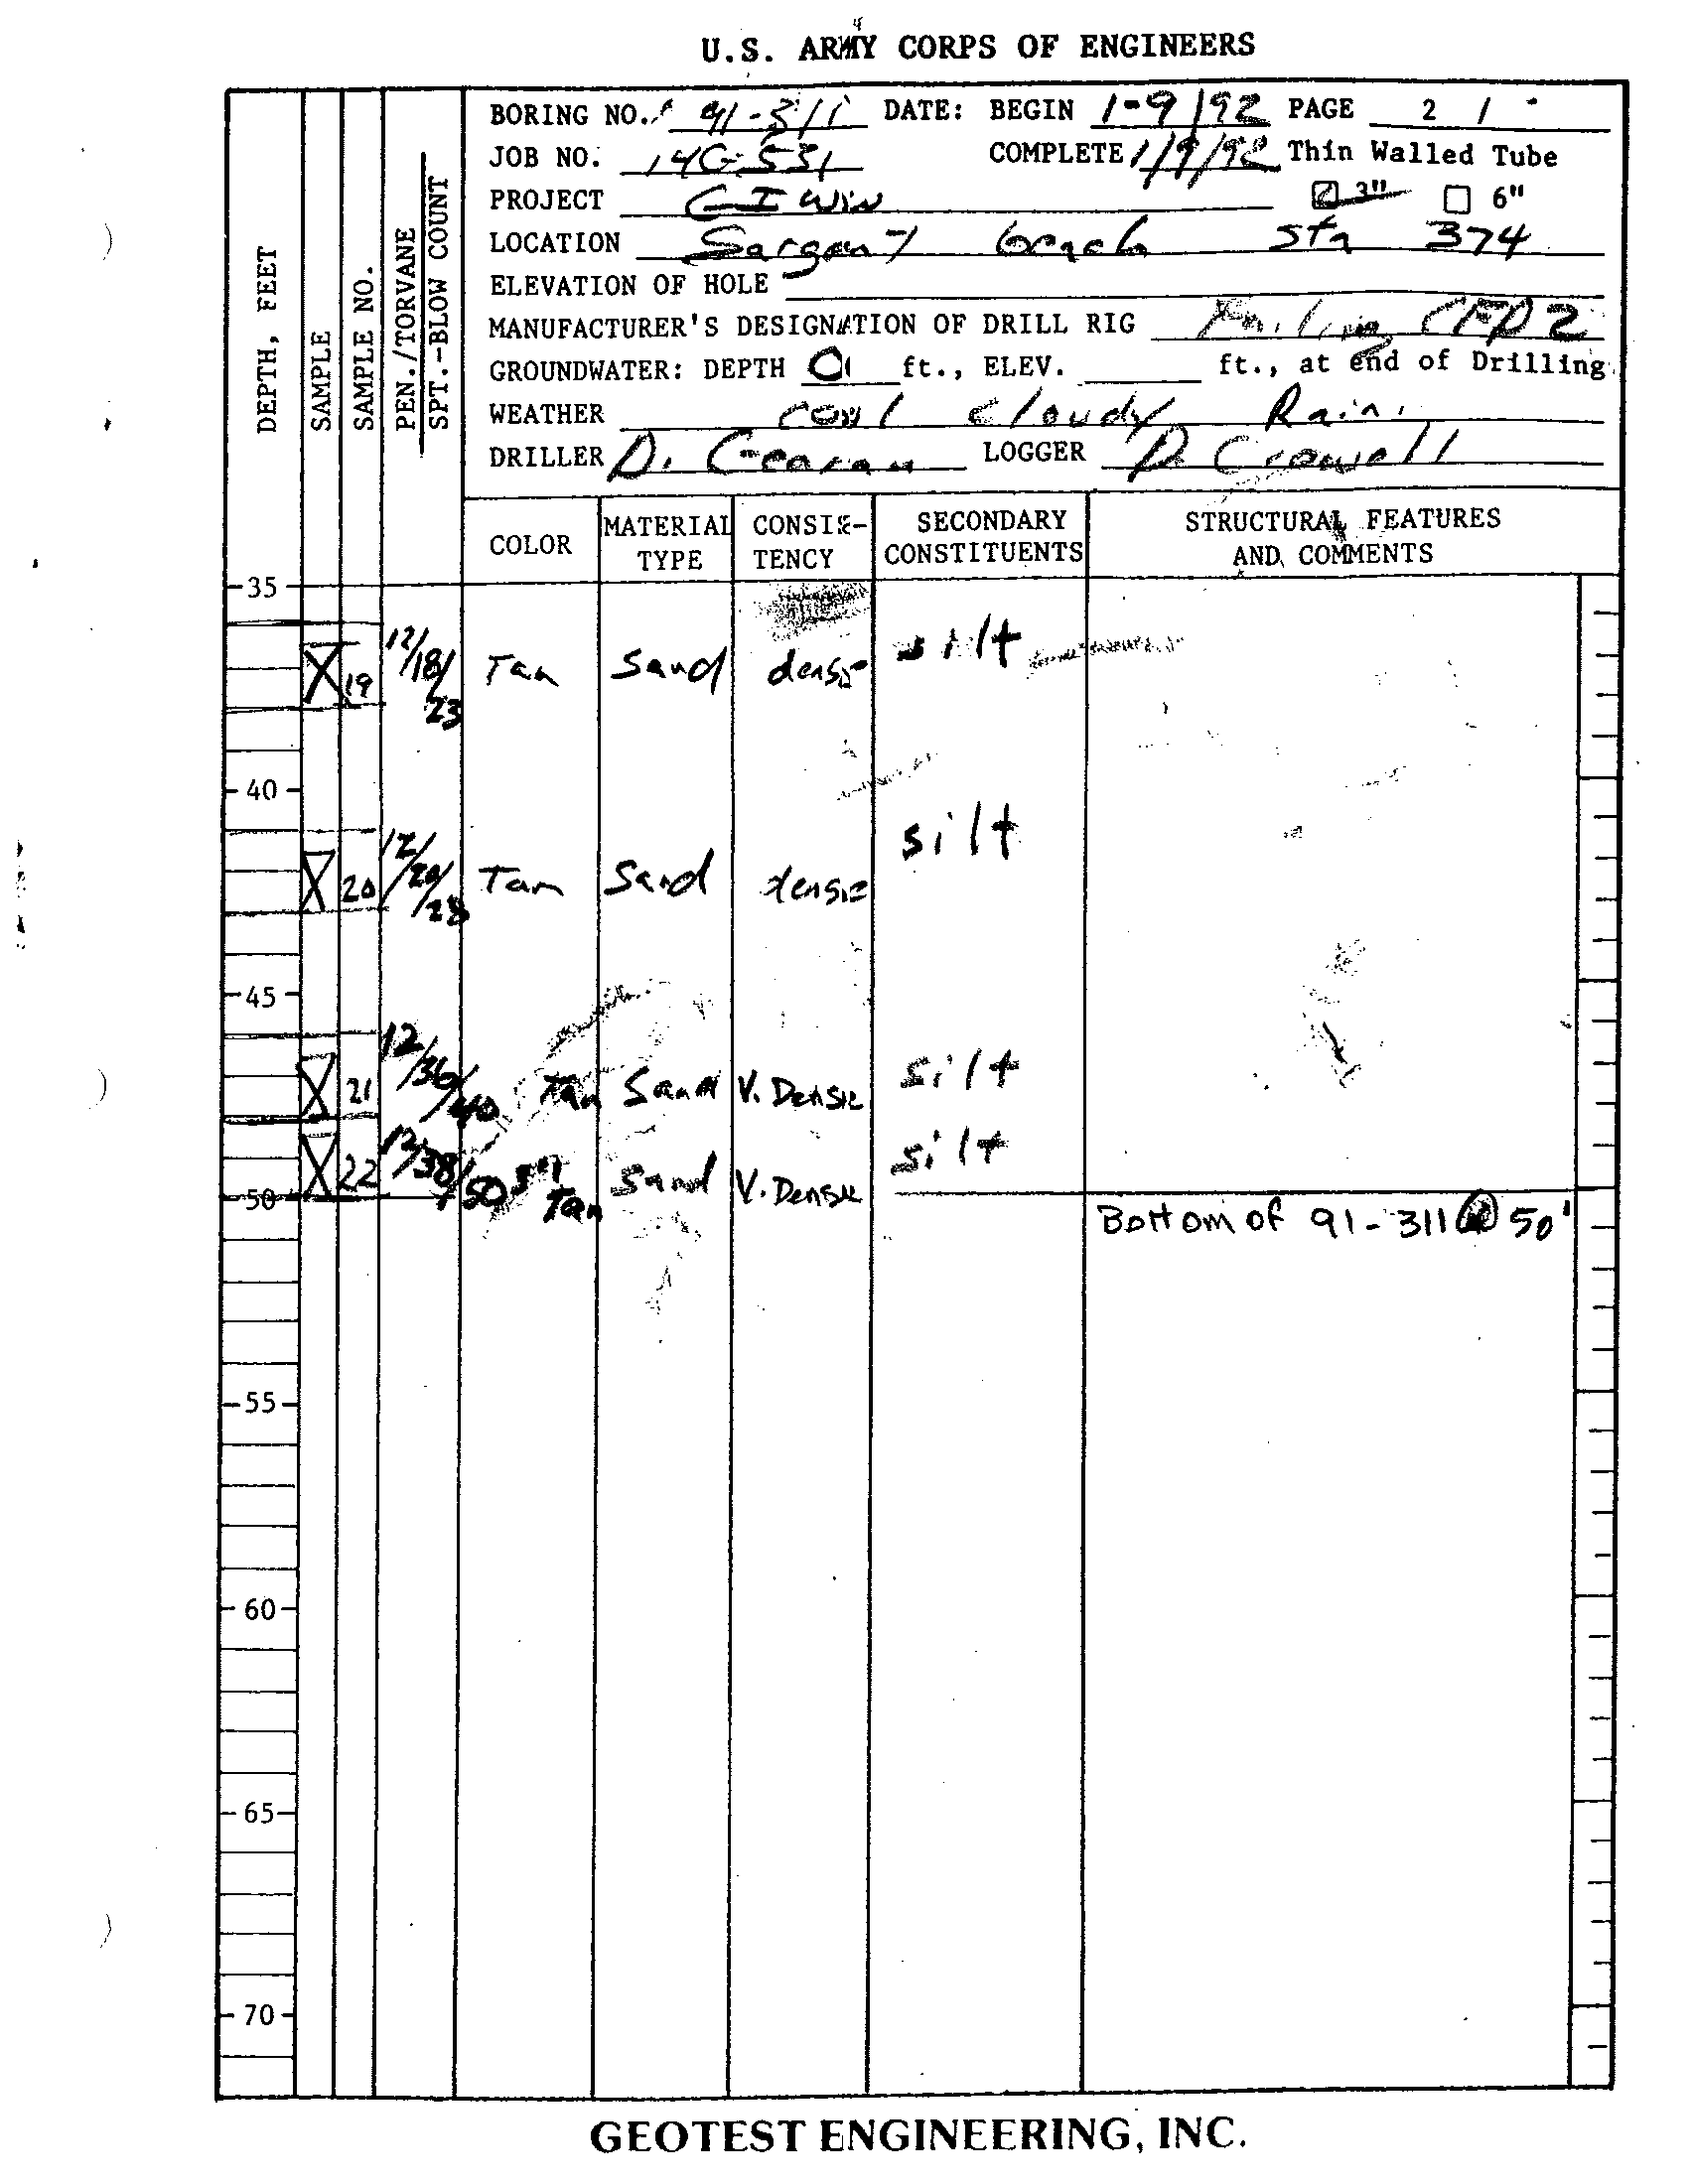 U.S. ARMY CORPS OF ENGINEERS
BORING NO. 91-311 DATE: BEGIN 1-9/92 PAGE 2 /
JOB NO. 14G-531 COMPLETE 1/9/92 Thin Walled Tube
PROJECT GIWW 3" 6"
LOCATION Sargent beach Sta 374
ELEVATION OF HOLE
MANUFACTURER'S DESIGNATION OF DRILL RIG Failing CFD 2
GROUNDWATER: DEPTH 0 ft., ELEV. ft., at end of Drilling
WEATHER cool cloudy Rain.
DRILLER D. LOGGER D. Crowell
DEPTH, FEET
SAMPLE
SAMPLE NO.
PEN./TORVANE
SPT.-BLOW COUNT
COLOR MATERIAL TYPE CONSIS-TENCY SECONDARY CONSTITUENTS STRUCTURAL FEATURES AND COMMENTS
35
19 12/18/23 Tan Sand dense silt
40
20 12/20/28 Tan Sand dense silt
45
21 12/36/40 Tan Sand V. Dense silt
22 12/38/50 5" Tan Sand V. Dense silt
50
Bottom of 91-311 @ 50'
55
60
65
70
GEOTEST ENGINEERING, INC.